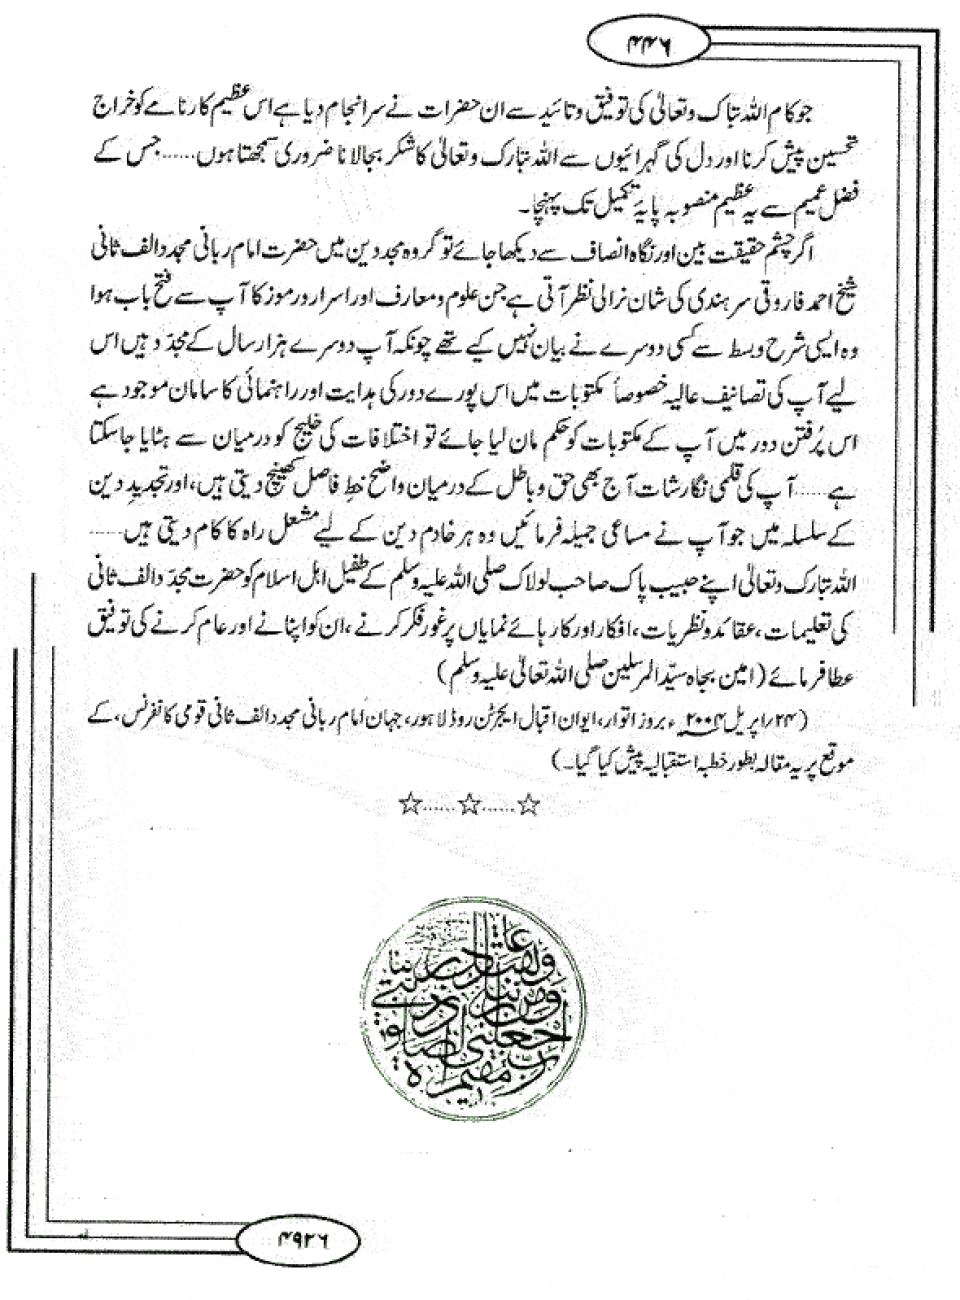 ۴۴۶
جو کام اللہ تبارک وتعالیٰ کی توفیق وتائید سے ان حضرات نے سرانجام دیا ہے اس عظیم کارنامے کو خراج
تحسین پیش کرنا اور دل کی گہرائیوں سے اللہ تبارک وتعالیٰ کا شکر بجالانا ضروری سمجھتا ہوں ...... جس کے
فضل عمیم سے یہ عظیم منصوبہ پایۂ تکمیل تک پہنچا۔
اگر چشم حقیقت بین اور نگاہ انصاف سے دیکھا جائے تو گروہ مجددین میں حضرت امام ربانی مجدد الف ثانی
شیخ احمد فاروقی سرہندی کی شان نرالی نظر آتی ہے جن علوم ومعارف اور اسرار ورموز کا آپ سے فتح باب ہوا
وہ ایسی شرح وبسط سے کسی دوسرے نے بیان نہیں کیے تھے چونکہ آپ دوسرے ہزار سال کے مجدّد ہیں اس
لیے آپ کی تصانیف عالیہ خصوصاً مکتوبات میں اس پورے دور کی ہدایت اور راہنمائی کا سامان موجود ہے
اس پُرفتن دور میں آپ کے مکتوبات کو حکم مان لیا جائے تو اختلافات کی خلیج کو درمیان سے ہٹایا جاسکتا
ہے ...... آپ کی قلمی نگارشات آج بھی حق وباطل کے درمیان واضح خطِ فاصل کھینچ دیتی ہیں، اور تجدیدِ دین
کے سلسلہ میں جو آپ نے مساعی جمیلہ فرمائیں وہ ہر خادم دین کے لیے مشعل راہ کا کام دیتی ہیں ......
اللہ تبارک وتعالیٰ اپنے حبیب پاک صاحب لولاک صلی اللہ علیہ وسلم کے طفیل اہل اسلام کو حضرت مجدّد الف ثانی
کی تعلیمات، عقائد ونظریات، افکار اور کارہائے نمایاں پر غور فکر کرنے، ان کو اپنانے اور عام کرنے کی توفیق
عطا فرمائے (امین بجاہ سیّد المرسلین صلی اللہ تعالیٰ علیہ وسلم)
(۲۴؍اپریل ۲۰۰۴ء بروز اتوار، ایوان اقبال ایجرٹن روڈ لاہور، جہان امام ربانی مجدد الف ثانی قومی کانفرنس، کے
موقع پر یہ مقالہ بطور خطبہ استقبالیہ پیش کیا گیا۔)
☆......☆......☆
رب اجعلنی مقیم الصلوٰۃ ومن ذریتی ربنا وتقبل دعاء
۴۹۲۶